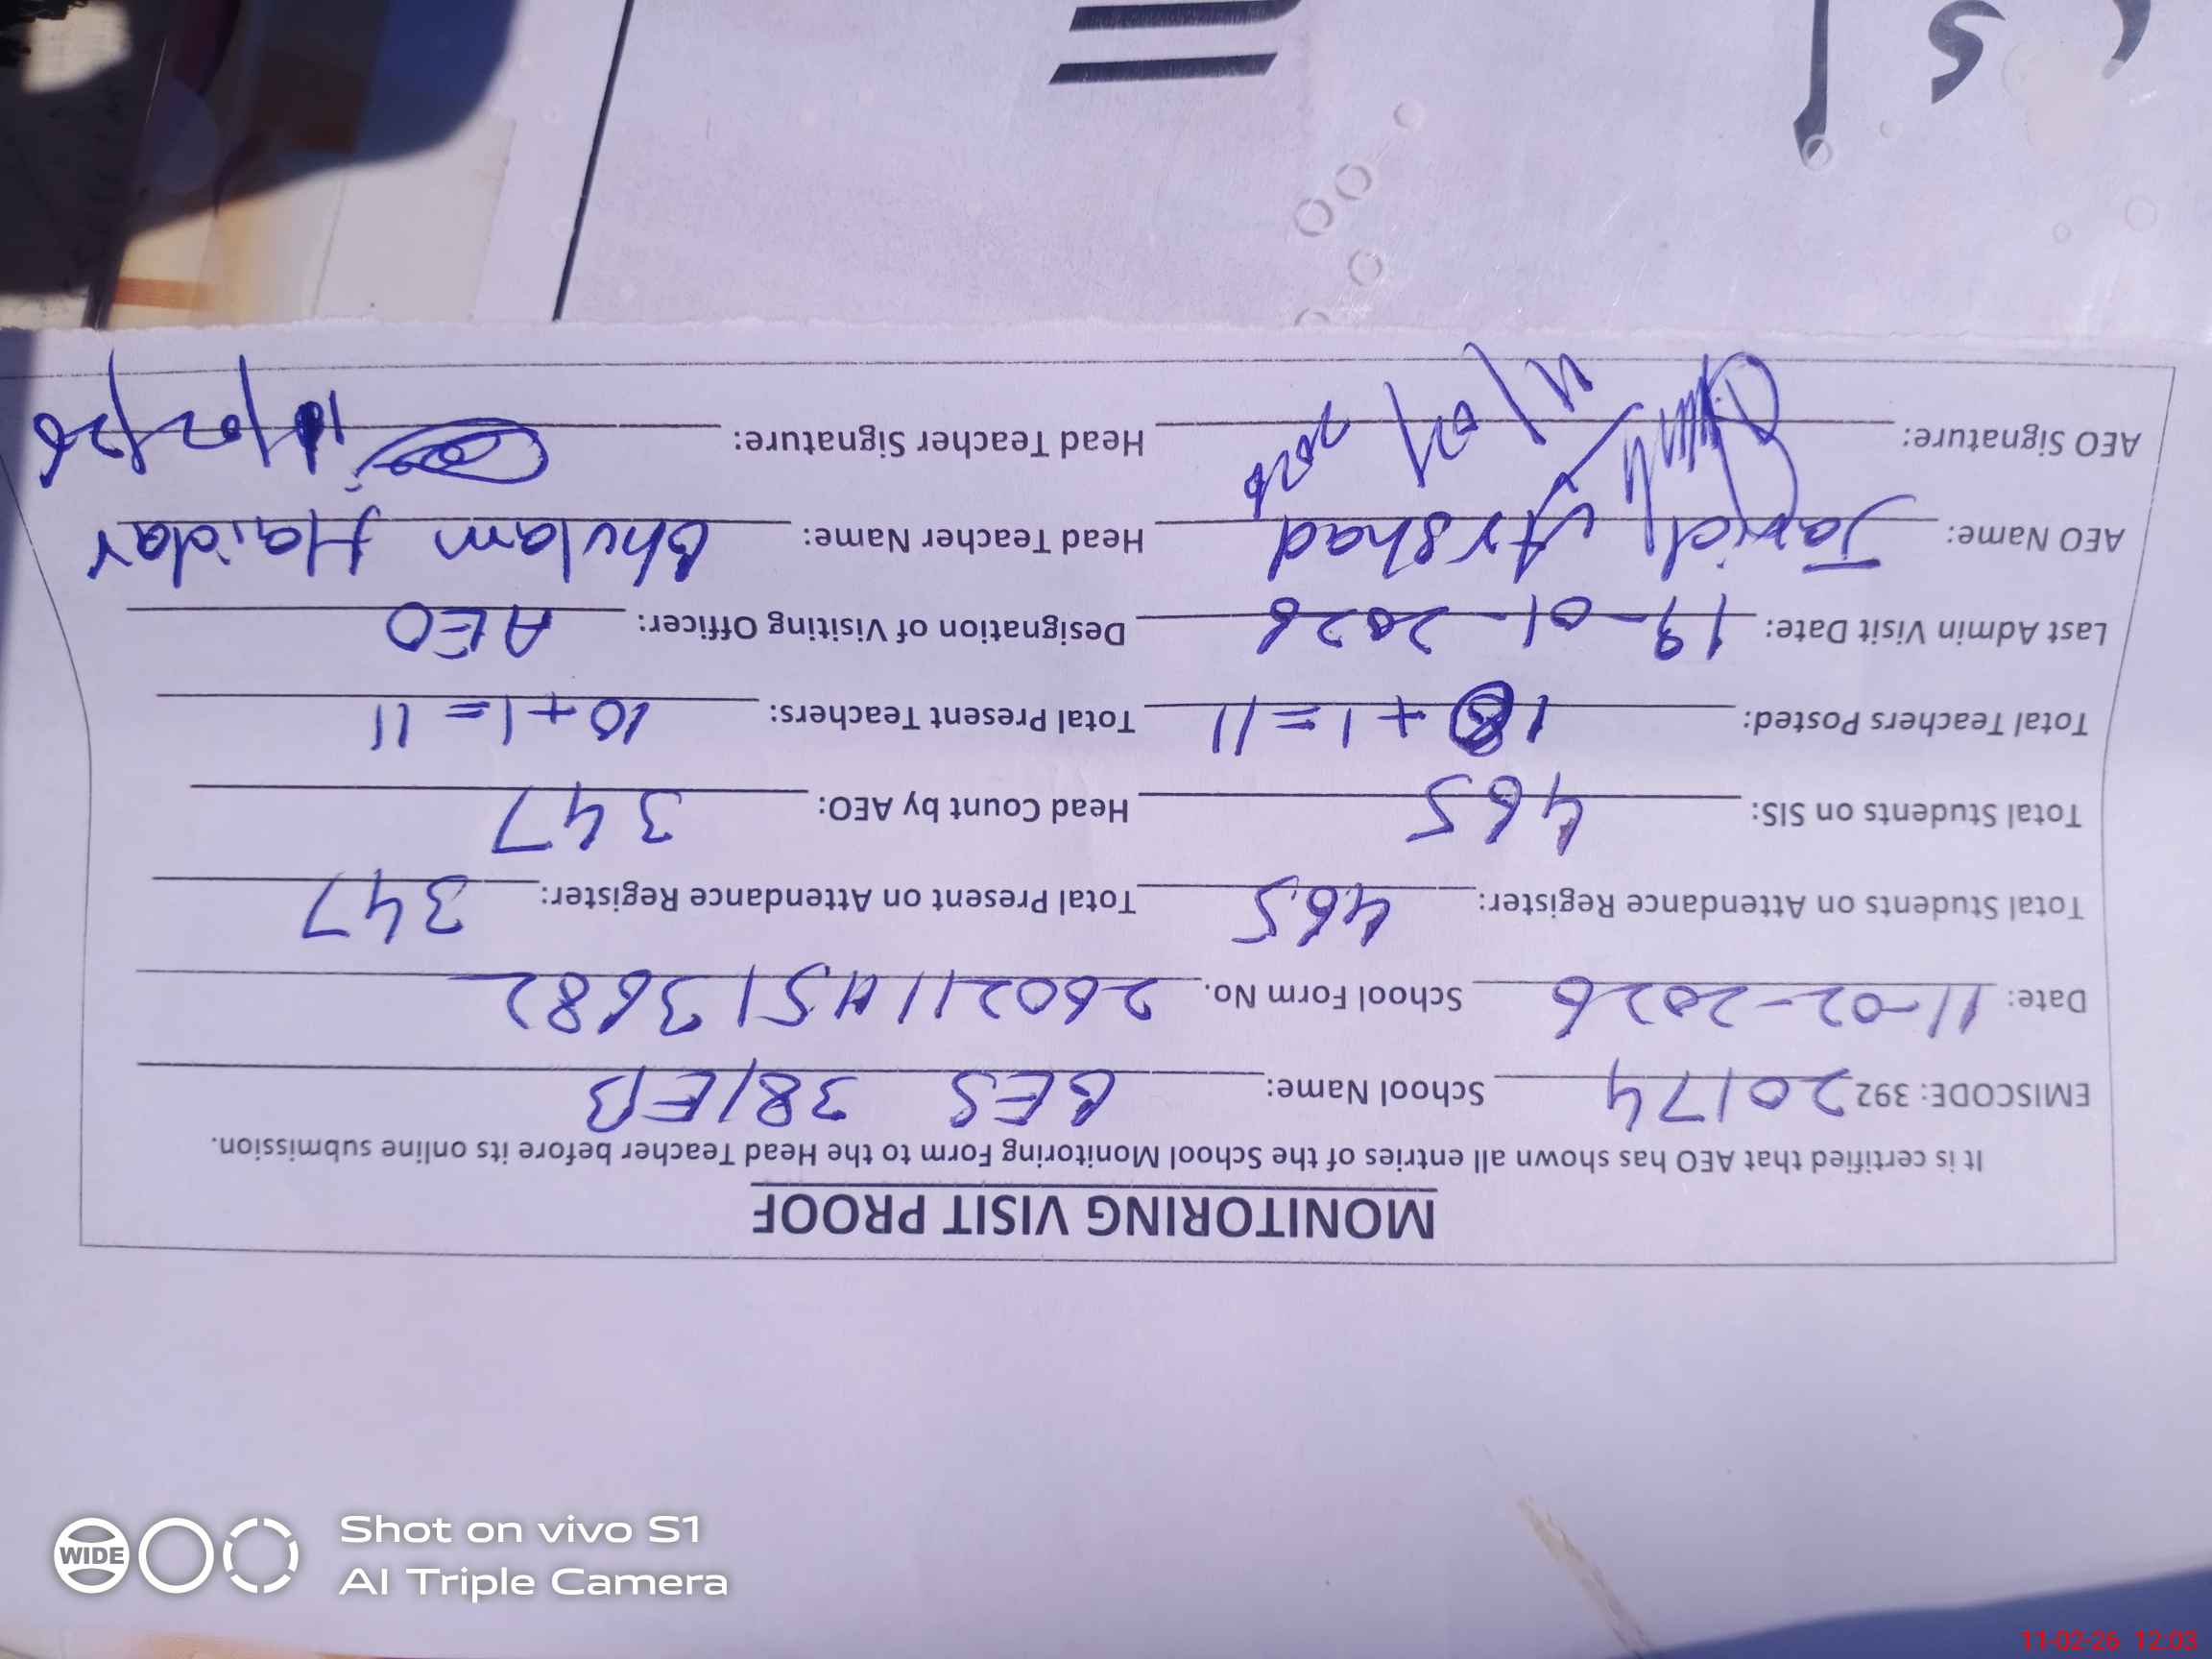 MONITORING VISIT PROOF
It is certified that AEO has shown all entries of the School Monitoring Form to the Head Teacher before its online submission.
EMISCODE: 392 20174 School Name: GES 38/EB
Date: 11-02-2026 School Form No. 2602111151 3682
Total Students on Attendance Register: 465 Total Present on Attendance Register: 347
Total Students on SIS: 465 Head Count by AEO: 347
Total Teachers Posted: 10 + 1 = 11 Total Present Teachers: 10 + 1 = 11
Last Admin Visit Date: 19-01-2026 Designation of Visiting Officer: AEO
AEO Name: Javid Arshad Head Teacher Name: Ghulam Haidar
AEO Signature: 2026 Head Teacher Signature: 11/02/26
Shot on vivo S1
AI Triple Camera
WIDE
11-02-26 12:03